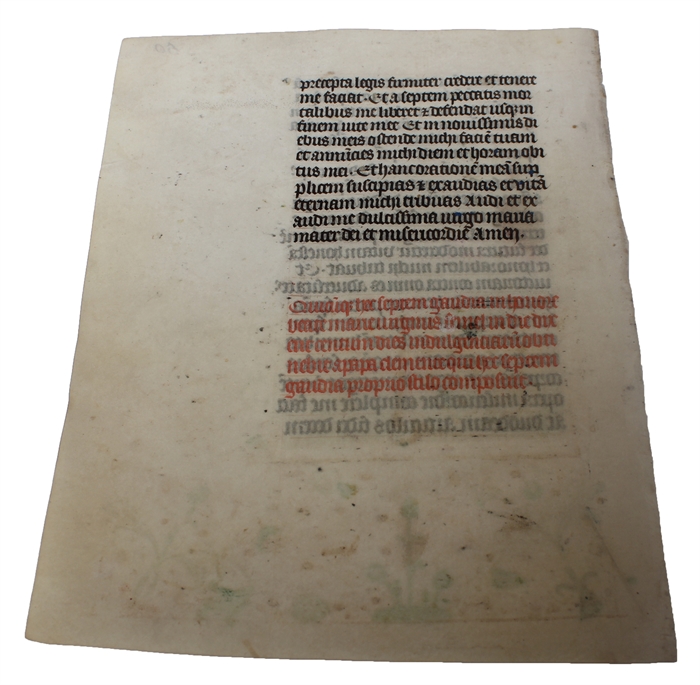 precepta legis firmiter credere et tenere
me faciat. Et a septem peccatis mor
talibus me liberet ⁊ defendat usqꝫ in
finem vite mee Et in novissimis di
ebus meis ostende michi faciē tuam
et annūcies michi diem et horam obi
tus mei. Et hanc orationē meā sup
plicem suscipias ⁊ exaudias et vitā
eternam michi tribuas Audi et ex
audi me dulcissima virgo maria
mater dei et misericordie Amen.
hec septem gaudia in honore
marie virginis semel in die dix
centum dies indulgentiarū obti
a papa clemente qui hec septem
gaudia proprio stilo composuit